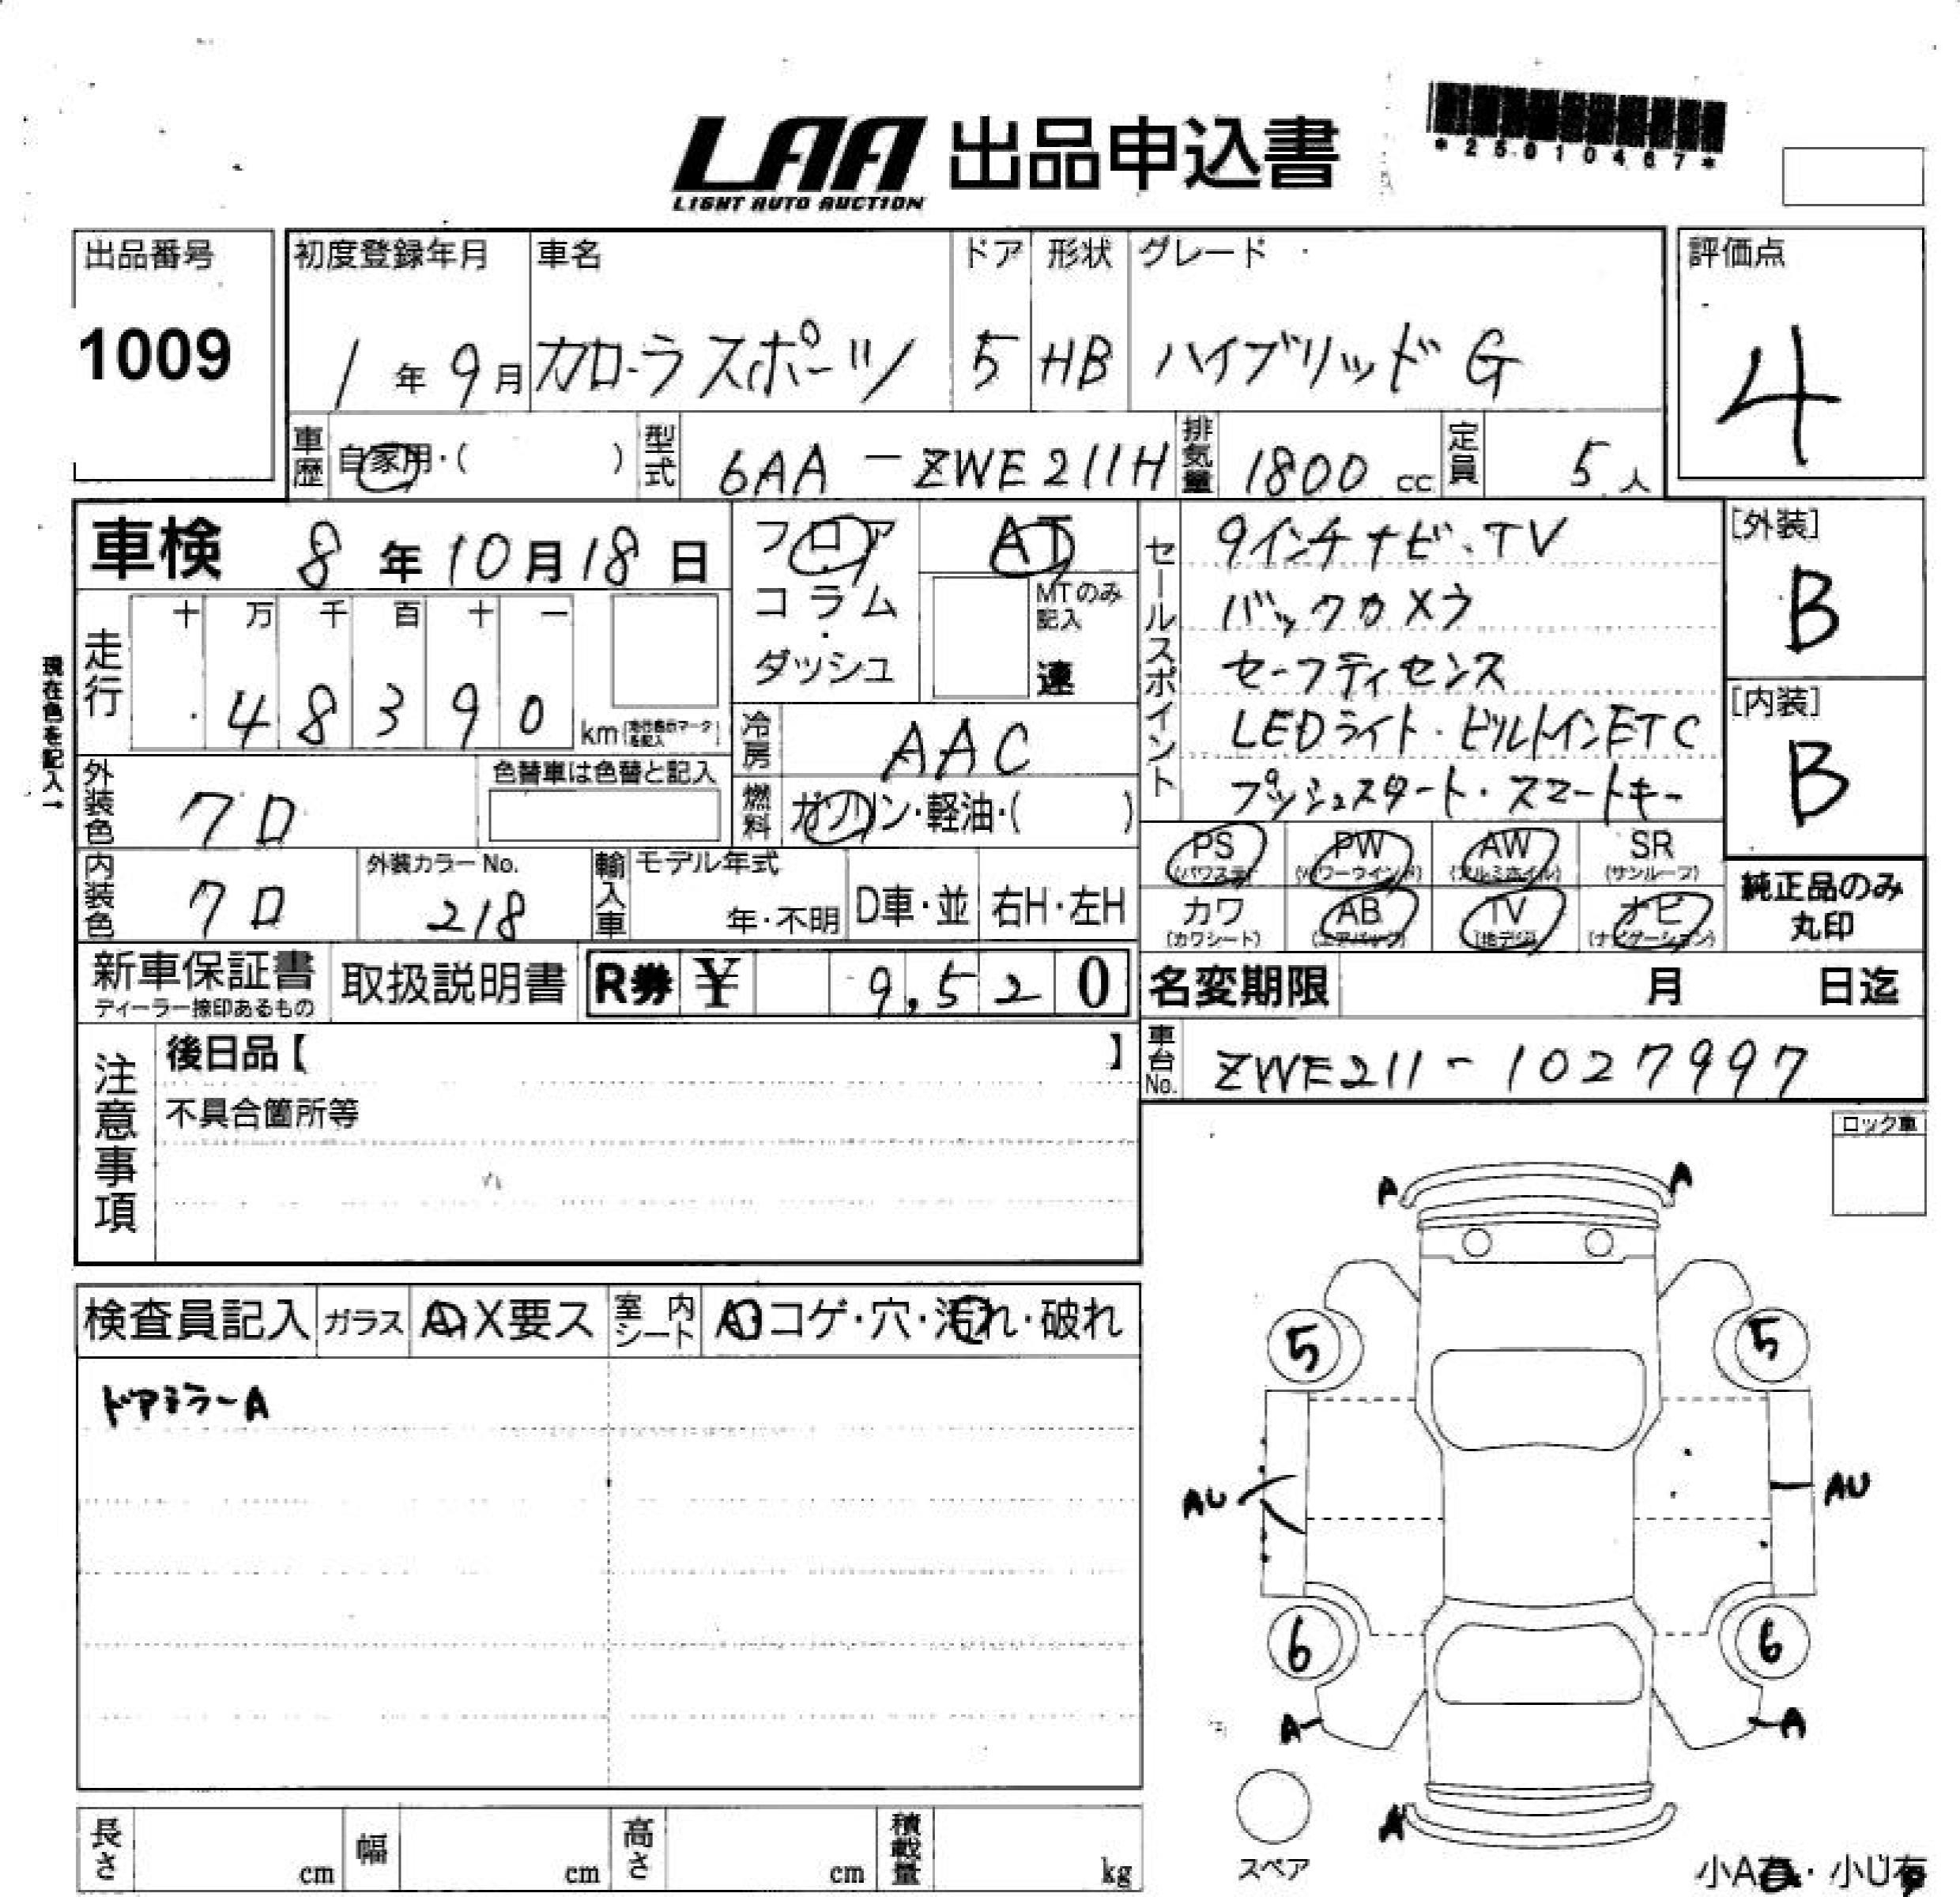 LAA 出品申込書
LIGHT AUTO AUCTION
*25010467*
出品番号 初度登録年月 車名 ドア 形状 グレード 評価点
1009 1年9月 カローラスポーツ 5 HB ハイブリッド G 4
車歴 自家用・( ) 型式 6AA-ZWE211H 排気量 1800 cc 定員 5人
車検 8年10月18日 フロア AT
コラム・ MTのみ記入
ダッシュ 速
セールスポイント
9インチナビ、TV
バックカメラ
セーフティセンス
LEDライト・ビルトインETC
プッシュスタート・スマートキー
[外装]
B
[内装]
B
現在色を記入→
走行 十 万 千 百 十 一
48390 km
冷房 AAC
外装色 クロ 色替車は色替と記入 燃料 ガソリン・軽油・( )
PS PW AW SR
(パワステ) (パワーウインド) (アルミホイル) (サンルーフ)
カワ AB TV ナビ
(カワシート) (エアバッグ) (地デジ) (ナビゲーション)
純正品のみ
丸印
内装色 クロ 外装カラーNo. 218 輸入車 モデル年式 年・不明 D車・並 右H・左H
新車保証書 取扱説明書 R券 ¥ 9,520 名変期限 月 日迄
ディーラー捺印あるもの
注意事項 後日品【 】
不具合箇所等
車台No. ZWE211-1027997
ロック車
A A
5 5
AU AU
6 6
A A
A
スペア
小A有・小U有
検査員記入 ガラス A・X要ス 室内シート A・コゲ・穴・汚れ・破れ
ドアミラーA
長さ cm 幅 cm 高さ cm 積載量 kg